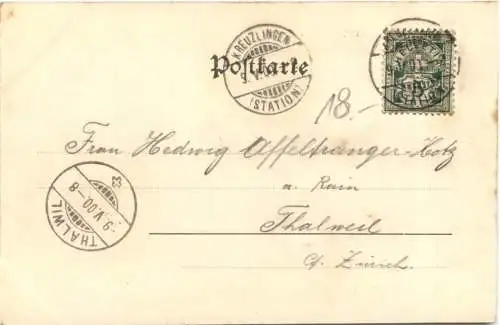 KREUZLINGEN
(STATION)
Postkarte
18.-
Frau Hedwig Affeltranger-Hotz
a. Rain
Thalweil
Ct. Zürich.
THALWIL
9.V.00.-8